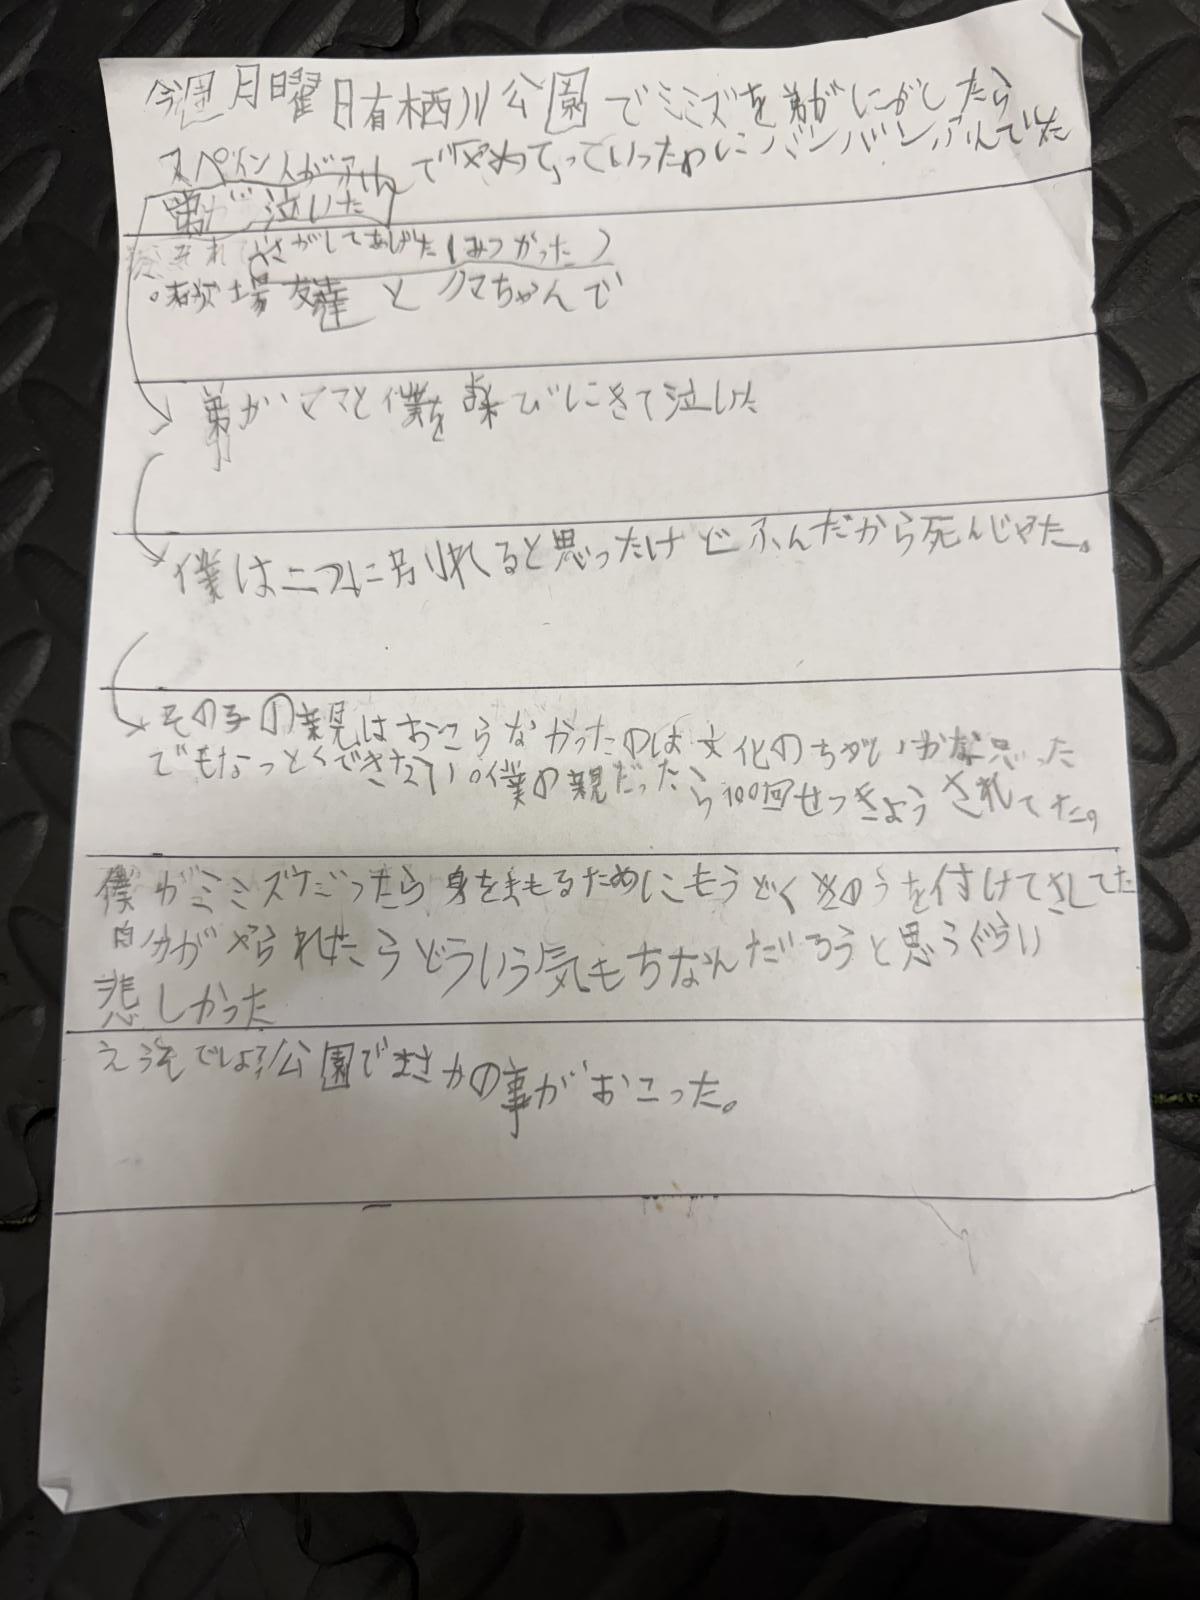 今週月曜日有栖川公園でミミズを弟がにがしたら
スペイン人がふんでやめてっていったのにバンバンふんでた
弟が泣いた
それ さがしてあげた(みつかった)
友達とクマちゃんで
弟がママと僕を呼びにきて泣いた
僕は二つに別れると思ったけどふんだから死んじゃた。
その子の親はおこらなかったのは文化のちがいかな思った
でもなっとくできない。僕の親だったら100回せっきょうされてた。
僕がミミズだったら身をまもるためにもうどくそのうを付けてさしてた
自分がやられたらどういう気もちなんだろうと思うぐらい
悲しかった
えうそでしょ!公園でまさかの事がおこった。